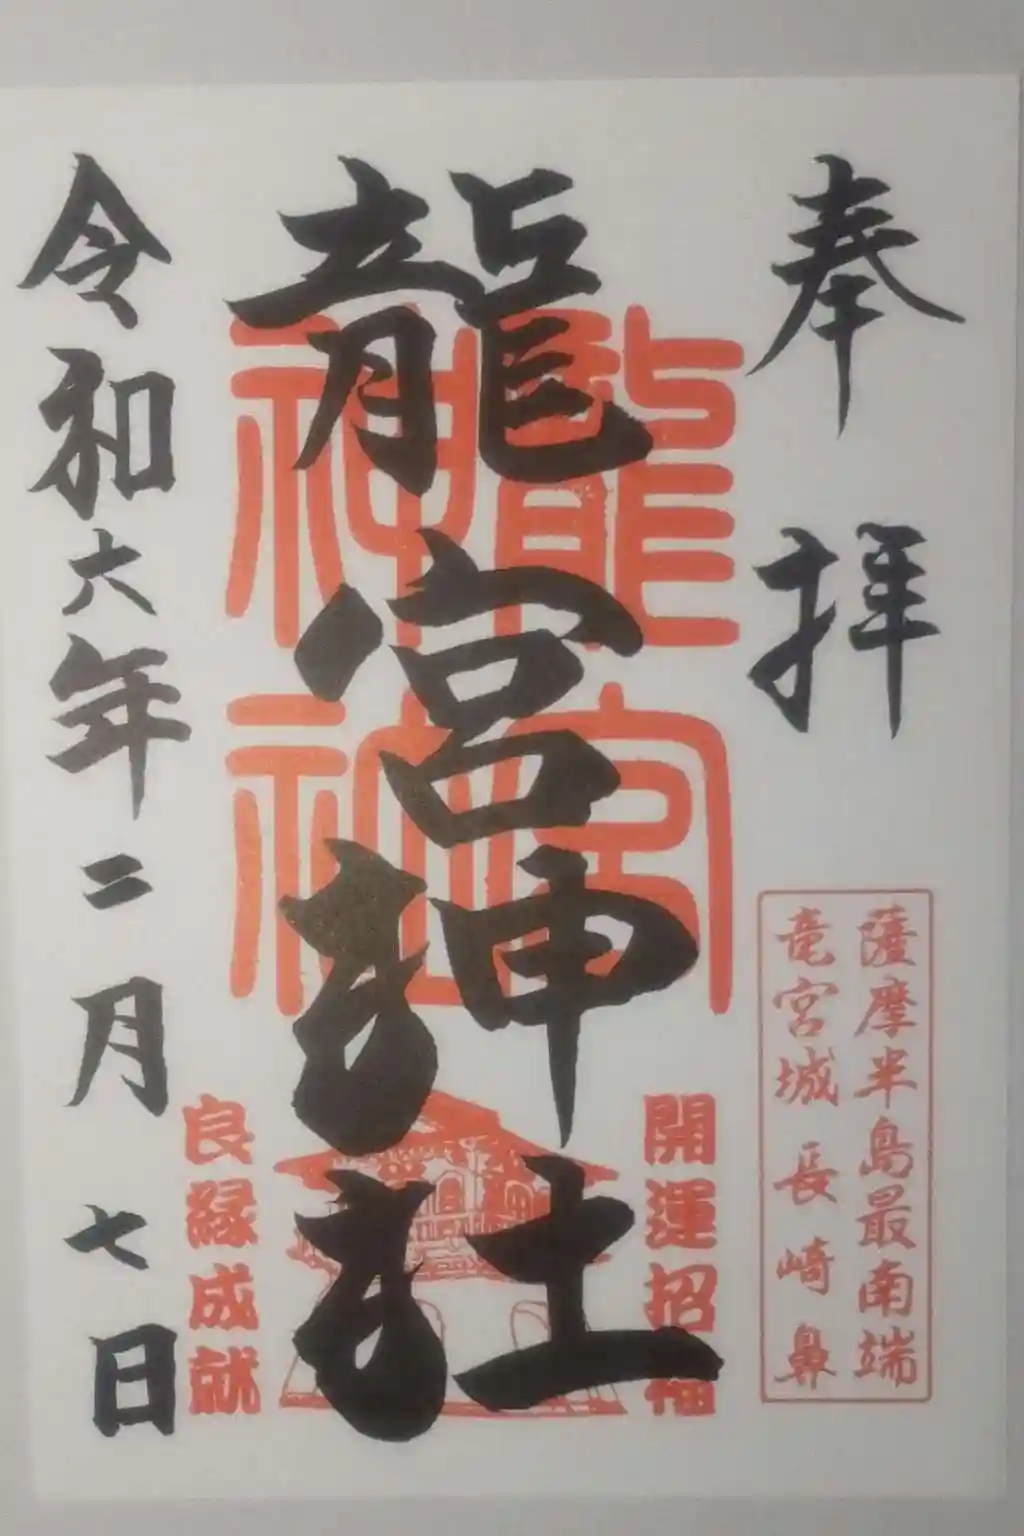 奉拝
薩摩半島最南端
竜宮城 長崎鼻
開運招福
龍宮神社
龍宮
神社
良縁成就
令和六年二月七日